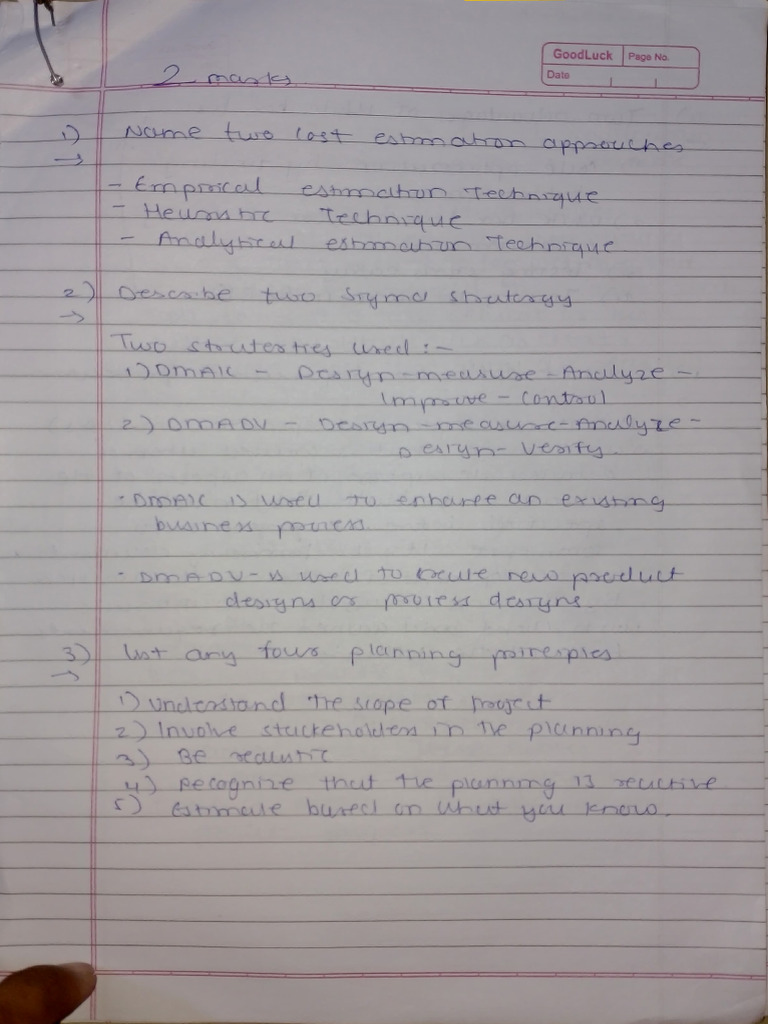 GoodLuck Page No.
Date
2 marks
1) Name two cost estimation approaches
→
- Empirical estimation Technique
- Heuristic Technique
- Analytical estimation Technique
2) Describe two sigma stratergy
→
Two straterties used :-
1) DMAIC - Design-measure-Analyze-
Improve-Control
2) DMADV - Design-measure-Analyze-
Design-Verify.
· DMAIC is used to enhance an existing
business process.
· DMADV-is used to create new product
designs or process designs.
3) list any four planning principles
→
1) Understand the scope of project
2) Involve stackeholders in the planning
3) Be realistic
4) Recognize that the planning is reactive
5) Estimate based on what you know.